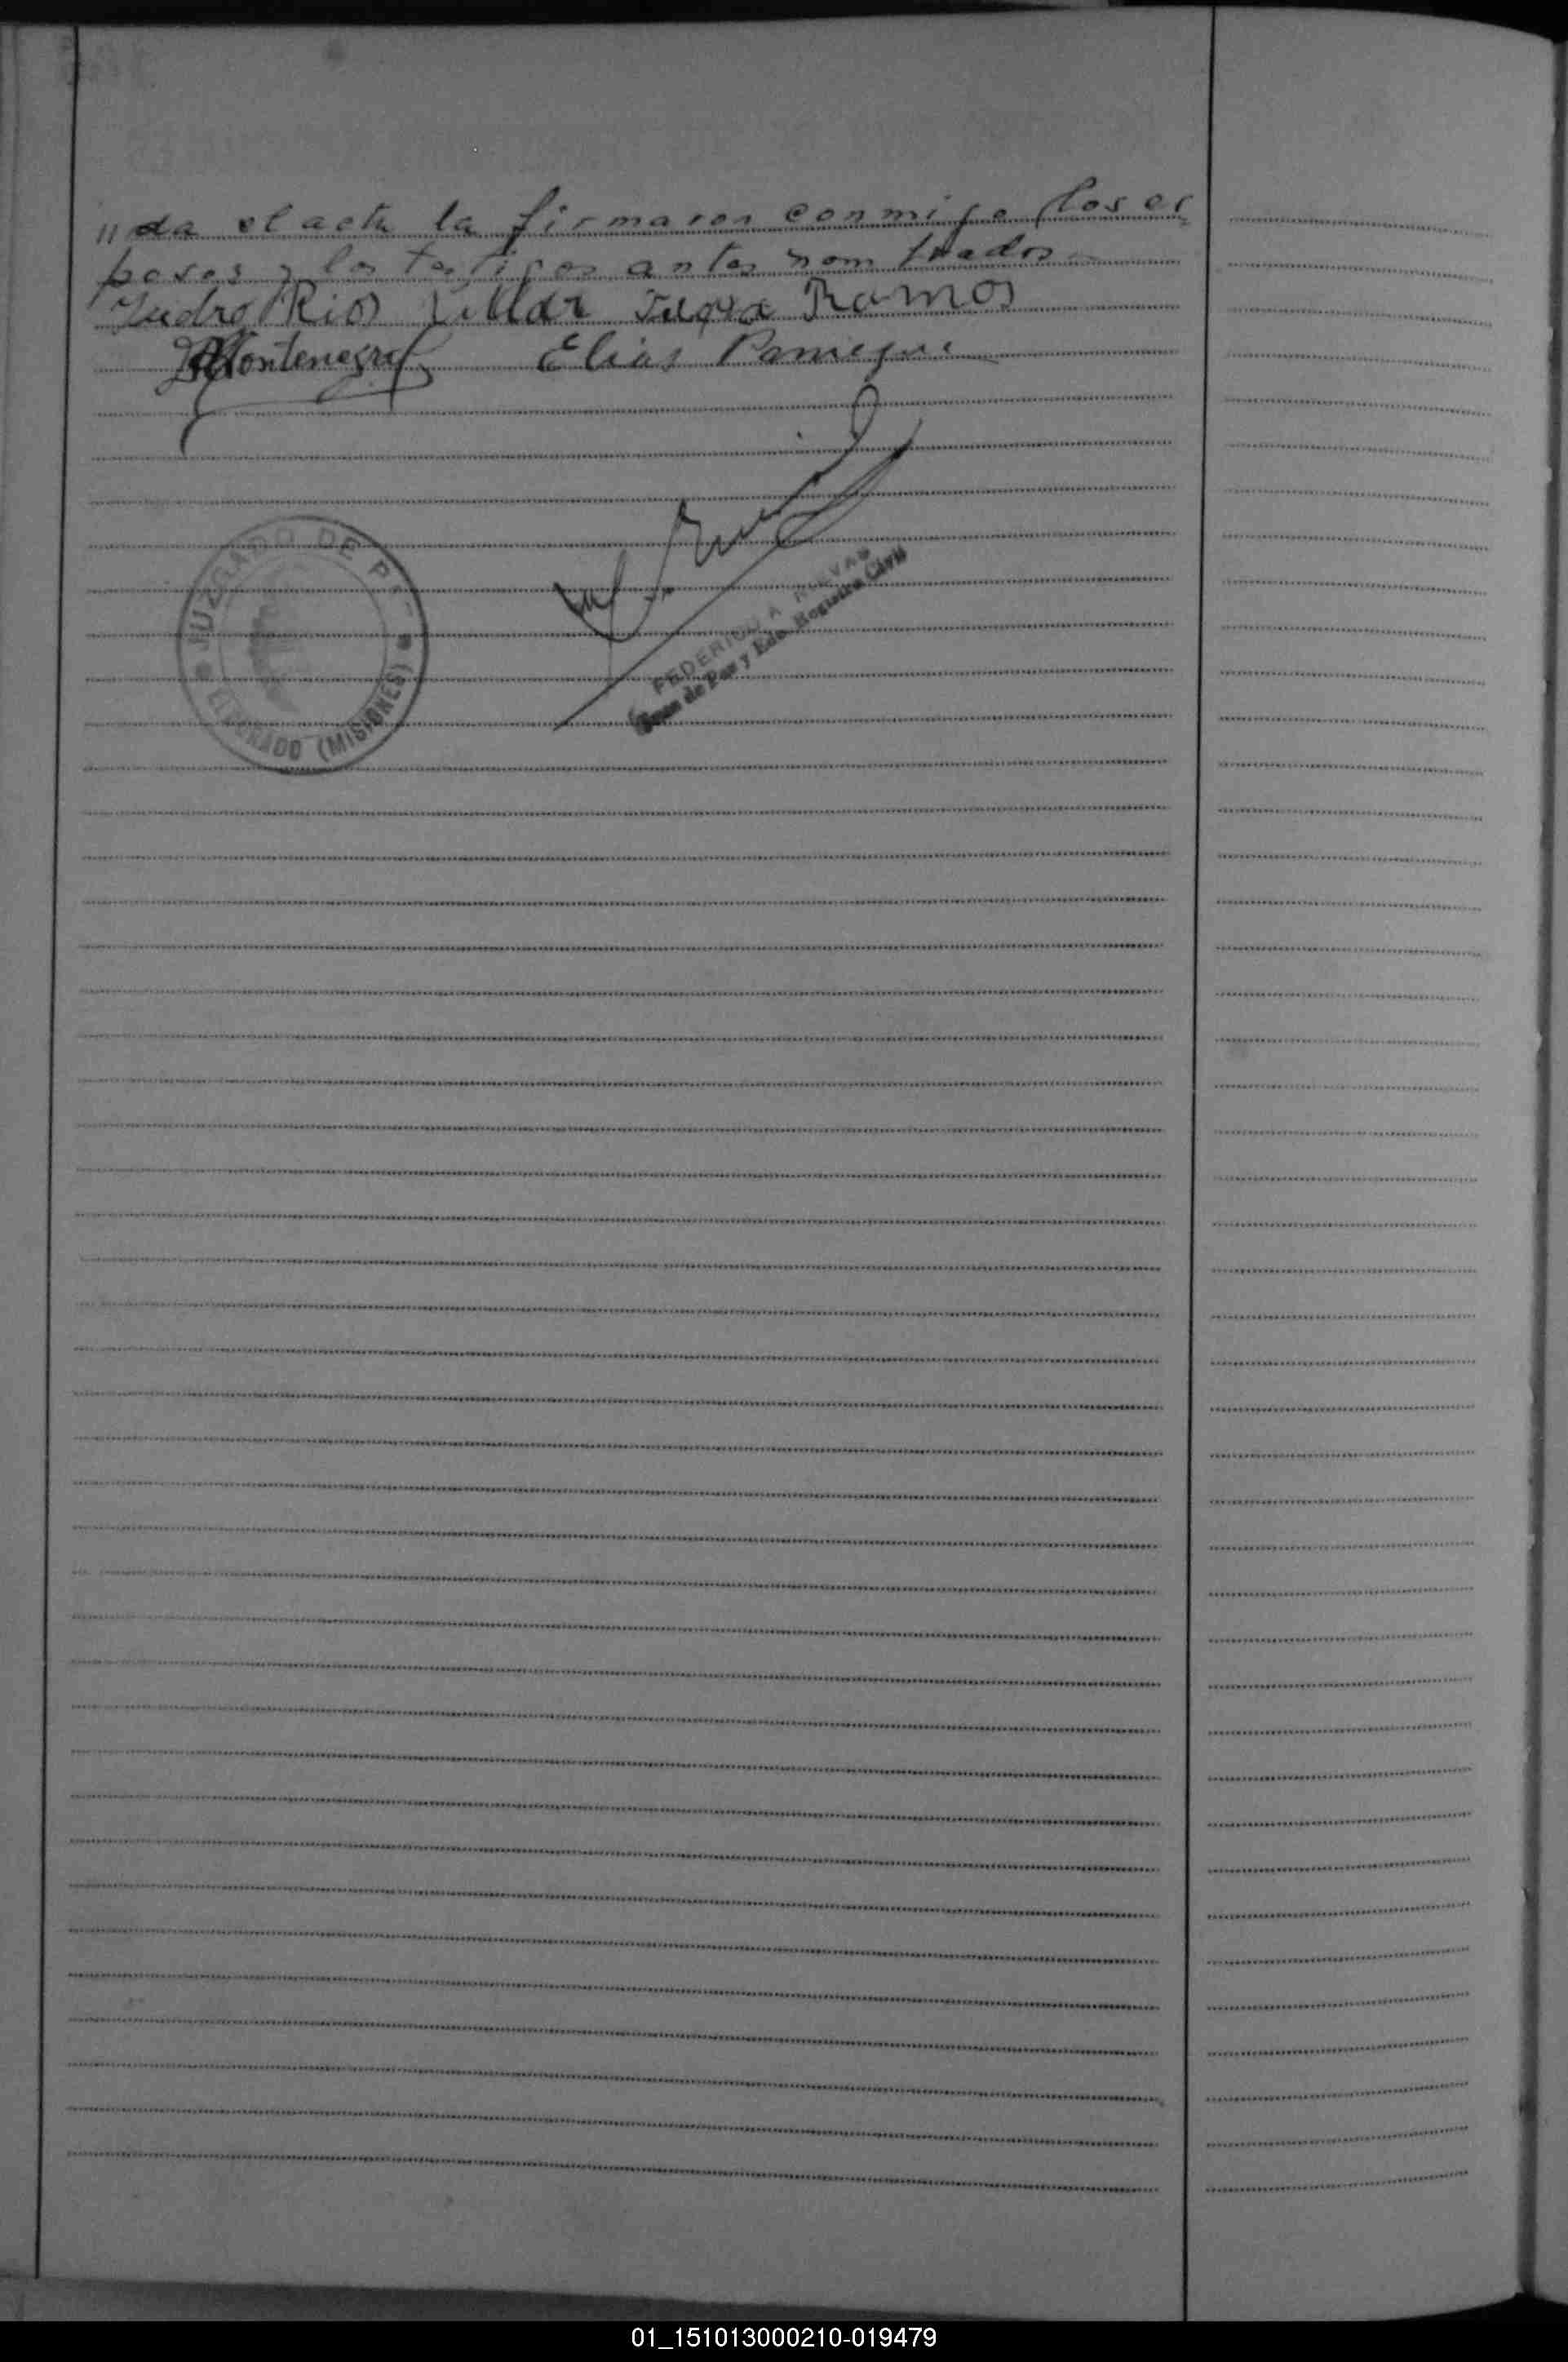 "da el acta la firmaron conmigo los es
posos y los testigos antes nombrados -
Rios Villar Ramos
Montenegro Elias
JUZGADO DE PAZ
ELDORADO (MISIONES)
FEDERICO A NUEVAS
Juez de Paz y Edo. Registro Civil
01_151013000210-019479